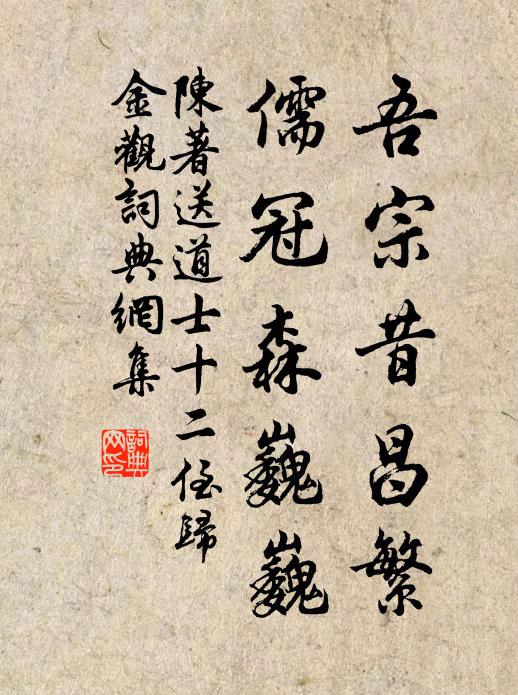 吾宗昔昌繁
儒冠森巍巍
陳著送道士十二侄歸
金觀詞典網集
詞典
网印